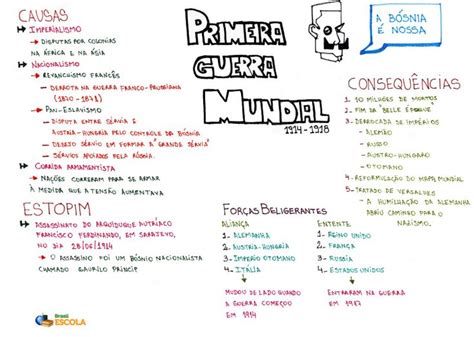 CAUSAS
IMPERIALISMO
DISPUTAS POR COLONIAS
NA ÁFRICA E NA ÁSIA
NACIONALISMO
REVANCHISMO FRANCÊS
DERROTA NA GUERRA FRANCO-PRUSSIANA
(1870 - 1871)
PAN-ESLAVISMO
DISPUTA ENTRE SÉRVIA E
AUSTRIA-HUNGRIA PELO CONTROLE DA BÓSNIA
DESEJO SÉRVIO EM FORMAR A "GRANDE SÉRVIA"
SÉRVIOS APOIADOS PELA RÚSSIA
CORRIDA ARMAMENTISTA
NAÇÕES CORRERAM PARA SE ARMAR
À MEDIDA QUE A TENSÃO AUMENTAVA
ESTOPIM
ASSASSINATO DO ARQUIDUQUE AUTRÍACO
FRANCISCO FERDINANDO, EM SARAJEVO,
NO DIA 28/06/1914
O ASSASSINO FOI UM BÓSNIO NACIONALISTA
CHAMADO GAVRILO PRINCIP
Brasil
ESCOLA
PRIMEIRA
GUERRA
MUNDIAL
1914 - 1918
A BÓSNIA
É NOSSA
FORÇAS BELIGERANTES
ALIANÇA
1 - ALEMANHA
2 - AUSTRIA-HUNGRIA
3 - IMPÉRIO OTOMANO
4 - ITÁLIA
MUDOU DE LADO QUANDO
A GUERRA COMEÇOU
EM 1914
ENTENTE
1 - REINO UNIDO
2 - FRANÇA
3 - RÚSSIA
4 - ESTADOS UNIDOS
ENTRARAM NA GUERRA
EM 1917
CONSEQUÊNCIAS
1 - 10 MILHÕES DE MORTOS
2 - FIM DA "BELLE ÉPOQUE"
3 - DERROCADA DE IMPÉRIOS
- ALEMÃO
- RUSSO
- AUSTRO-HÚNGARO
- OTOMANO
4 - REFORMULAÇÃO DO MAPA MUNDIAL
5 - TRATADO DE VERSALHES
- A HUMILHAÇÃO DA ALEMANHA
ABRIU CAMINHO PARA O
NAZISMO.